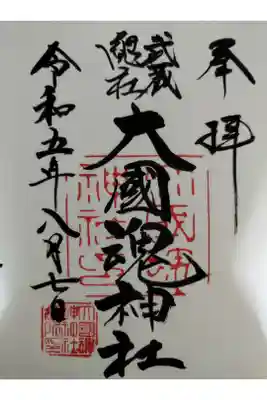 奉拝
武蔵
總社
大國魂神社
令和五年八月七日